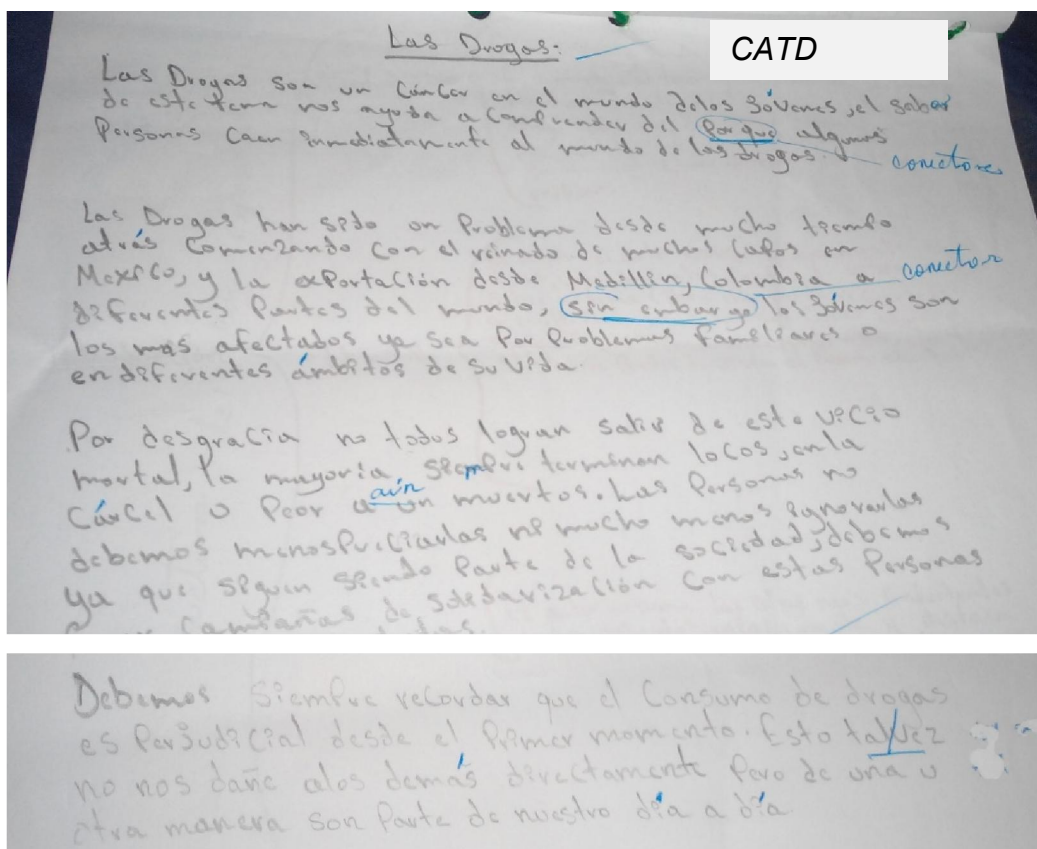 Las Drogas:
CATD
Las Drogas son un Cáncer en el mundo delos Jóvenes, el saber
de este tema nos ayuda a Comprender del Por que algunos
Personas Caen inmediatamente al mundo de las drogas.
conectores
Las Drogas han sido un Problema desde mucho tiempo
atrás Comenzando Con el reinado de muchos Capos en
Mexico, y la exPortación desde Medillín, Colombia a
conector
diferentes Partes del mundo, sin embargo los Jóvenes son
los mas afectados ya sea Por Problemas familiares o
en diferentes ámbitos de su vida.
Por desgracia no todos logran salir de este vicio
mortal, la mayoría siempre terminan locos, en la
aún
Cárcel o Peor a un muertos. Las Personas no
debemos menosPreciarlas ni mucho menos ignorarlas
ya que siguen siendo Parte de la sociedad, debemos
Campañas de solidarización Con estas Personas
Debemos Siempre recordar que el Consumo de drogas
es PerJudicial desde el Primer momento. Esto tal/vez
no nos dañe alos demás directamente Pero de una u
otra manera son Parte de nuestro día a día